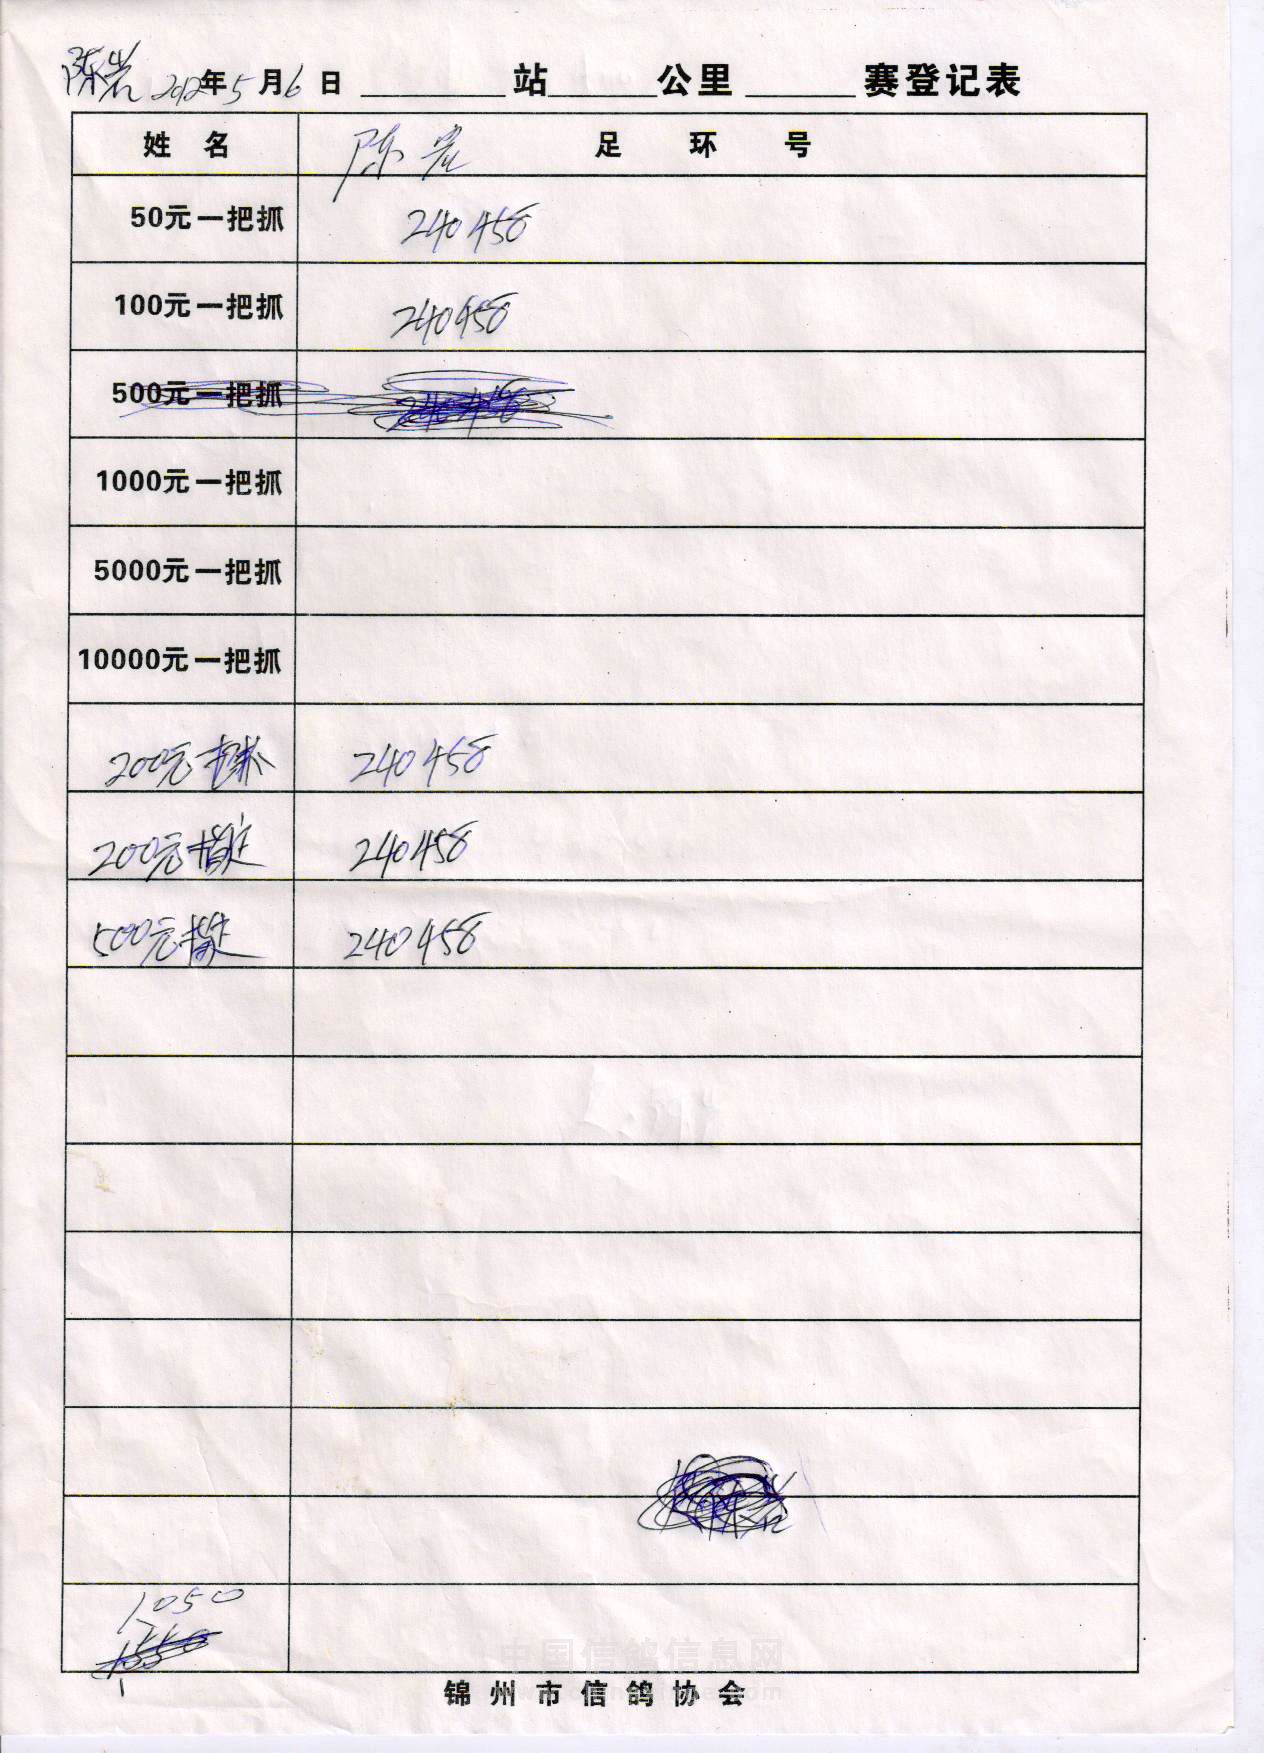 陈岩 2012年5月6日 ______站______公里 ______赛登记表
姓 名 陈岩 足 环 号
50元一把抓 240458
100元一把抓 240458
500元一把抓 240458
1000元一把抓
5000元一把抓
10000元一把抓
200元 240458
200元指定 240458
500元指定 240458
1050
1550
中国信鸽信息网
锦州市信鸽协会